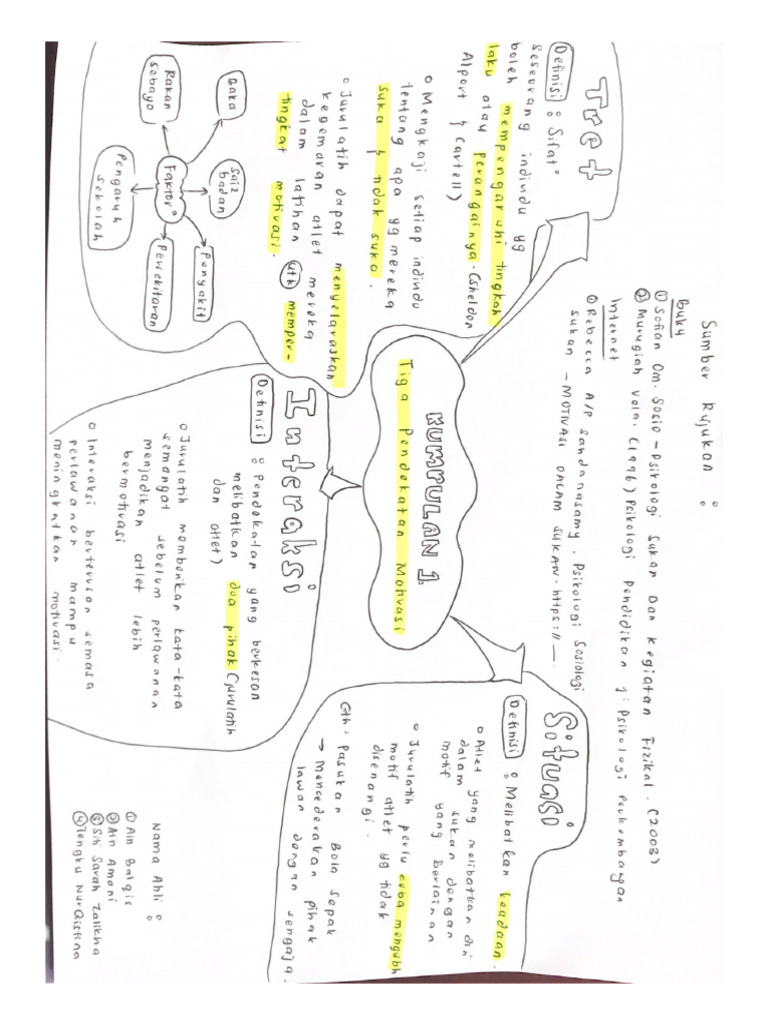 Sumber Rujukan :
Buku
① Sofian Om. Sosio-Psikologi Sukan Dan Kegiatan Fizikal. (2003)
② Murugiah Vela. (1996) Psikologi Pendidikan 1: Psikologi Perkembangan
Internet
① Rebecca A/P Sandanasamy. Psikologi Sosiologi
sukan - MOTIVASI DALAM SUKAN. https://—.
KUMPULAN 1
Tiga Pendekatan Motivasi
Tret
Definisi : Sifat²
seseorang individu yg
boleh mempengaruhi tingkah
laku atau perangainya. (Sheldon
Alport & Cartell)
Mengkaji setiap individu
tentang apa yg mereka
suka & tidak suka.
Jurulatih dapat menyelaraskan
kegemaran atlet mereka
dalam latihan utk memper-
tingkat motivasi.
Faktor²
Gaka
Saiz
badan
Penyakit
Persekitaran
Pengaruh
sekolah
Rakan
sebaya
Interaksi
Definisi : Pendekatan yang berkesan
melibatkan dua pihak (jurulatih
dan atlet)
Jurulatih memberikan kata-kata
semangat sebelum perlawanan
menjadikan atlet lebih
bermotivasi
Interaksi berterusan semasa
perlawanan mampu
meningkatkan motivasi.
Situasi
Definisi : Melibatkan keadaan.
Atlet yang melibatkan diri
dalam sukan dengan
motif yang berlainan
Jurulatih perlu cuba mengubh
motif atlet yg tidak
disenangi.
Cth: Pasukan Bola sepak
→ Mencederakan pihak
lawan dengan sengaja.
Nama Ahli :
① Ain Balqis
② Ain Amani
③ Siti Sarah Zalikha
④ Tengku Nur Qistina